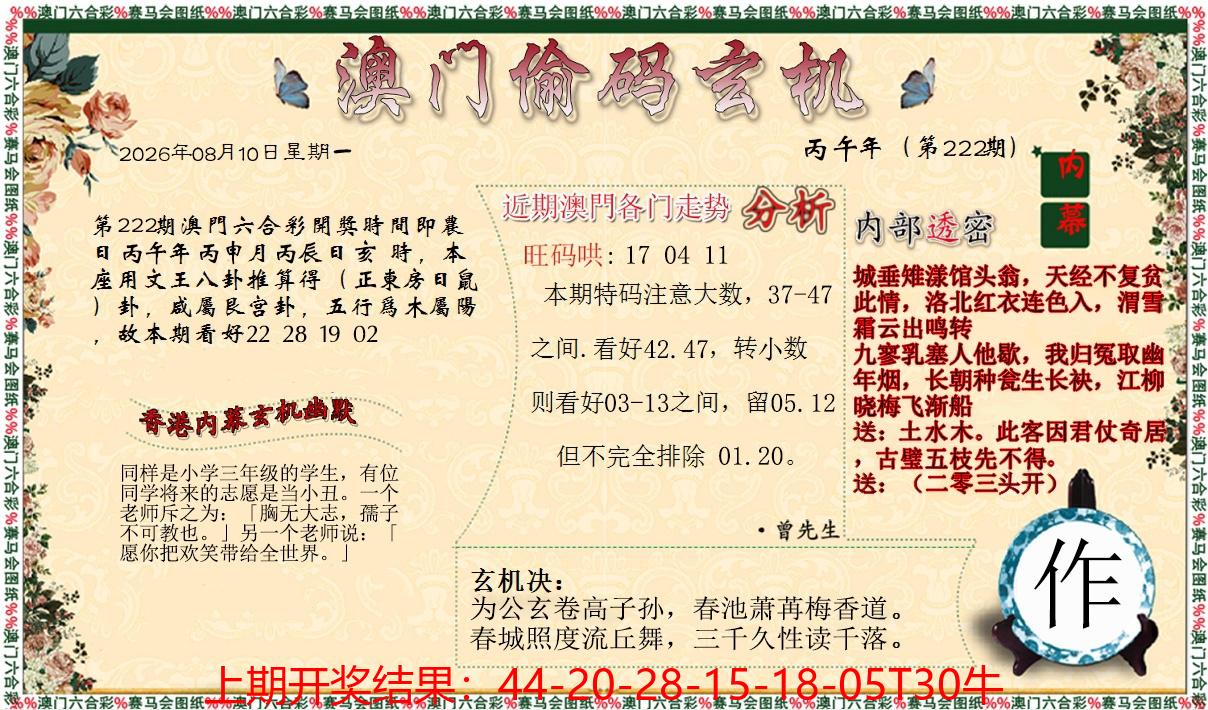 %%澳门六合彩%赛马会图纸%%澳门六合彩%赛马会图纸%%澳门六合彩%赛马会图纸%%澳门六合彩%赛马会图纸%%澳门六合彩%赛马会图纸%%澳门六合彩%赛马会图纸%%
澳门偷码玄机
2026年08月10日星期一
丙午年（第222期）
第222期澳門六合彩開獎時間即農
日丙午年丙申月丙辰日亥 時，本
座用文王八卦推算得（正東房日鼠
）卦，咸屬艮宫卦，五行爲木屬陽
，故本期看好22 28 19 02
香港内幕玄机幽默
同样是小学三年级的学生，有位
同学将来的志愿是当小丑。一个
老师斥之为：「胸无大志，孺子
不可教也。」另一个老师说：「
愿你把欢笑带给全世界。」
近期澳門各门走势 分析
旺码哄: 17 04 11
本期特码注意大数，37-47
之间.看好42.47，转小数
则看好03-13之间，留05.12
但不完全排除 01.20。
·曾先生
内幕
内部透密
城垂雉漾馆头翁，天经不复贫
此情，洛北红衣连色入，渭雪
霜云出鸣转
九寥乳塞人他歇，我归冤取幽
年烟，长朝种瓮生长袂，江柳
晓梅飞渐船
送：土水木。此客因君仗奇居
，古璧五枝先不得。
送：（二零三头开）
作
玄机决：
为公玄卷高子孙，春池萧苒梅香道。
春城照度流丘舞，三千久性读千落。
上期开奖结果：44-20-28-15-18-05T30牛